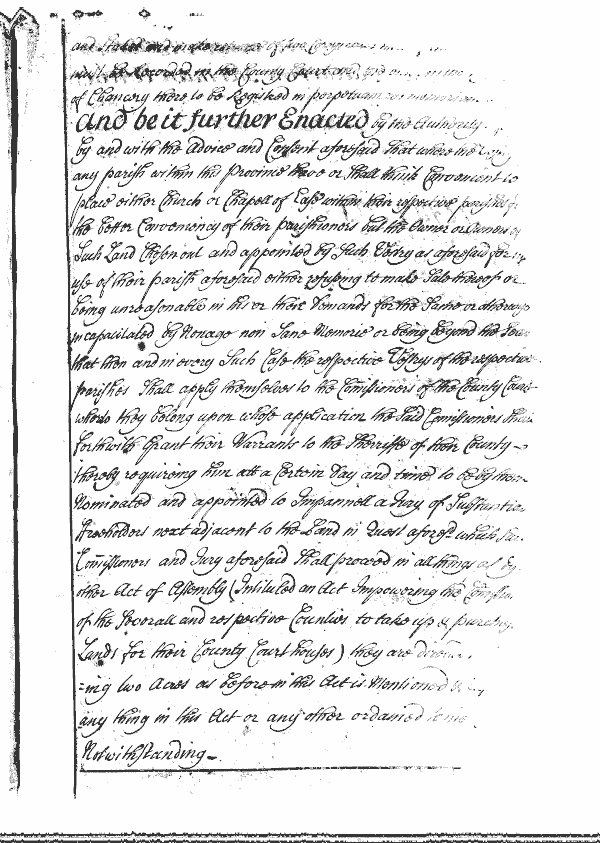 and
must be Recorded in the County Court and
of Chancery there to be Registred in perpetuam
And be it further Enacted by the Authority
by and with the Advice and Consent aforesaid That where the
any parish within this Province have or Shall think Convenient to
place either Church or Chappell of Ease within their respective parishes
the better Conveniency of their parishioners but the Owner or Owners of
Such Land Chosen out and appointed by Such Vestry as aforesaid for
use of their parish aforesaid either refusing to make Sale thereof or
being unreasonable in his or their Demands for the Same or otherways
incapacitated by Nonage non Sane Memorie or being beyond the Seas
that then and in every Such Case the respective Vestrys of the respective
parishes Shall apply themselves to the Comissioners of the County Court
whereto they belong upon whose application the Said Comissioners
forthwith Grant their Warrants to the Sherriffe of their County
thereby requireing him att a Certain day and time to be by them
Nominated and appointed to Impannell a Jury of Substantiall
Freeholders next adjacent to the Land in Quest aforesd which
Comissioners and Jury aforesaid Shall proceed in all things as by
other Act of Assembly (Intituled an Act Impowering the
of the Severall and respective Counties to take up & purchase
Lands for their County Court houses) they are
=ing two Acres as before in this Act is Mentioned
any thing in this Act or any other ordained
Notwithstanding